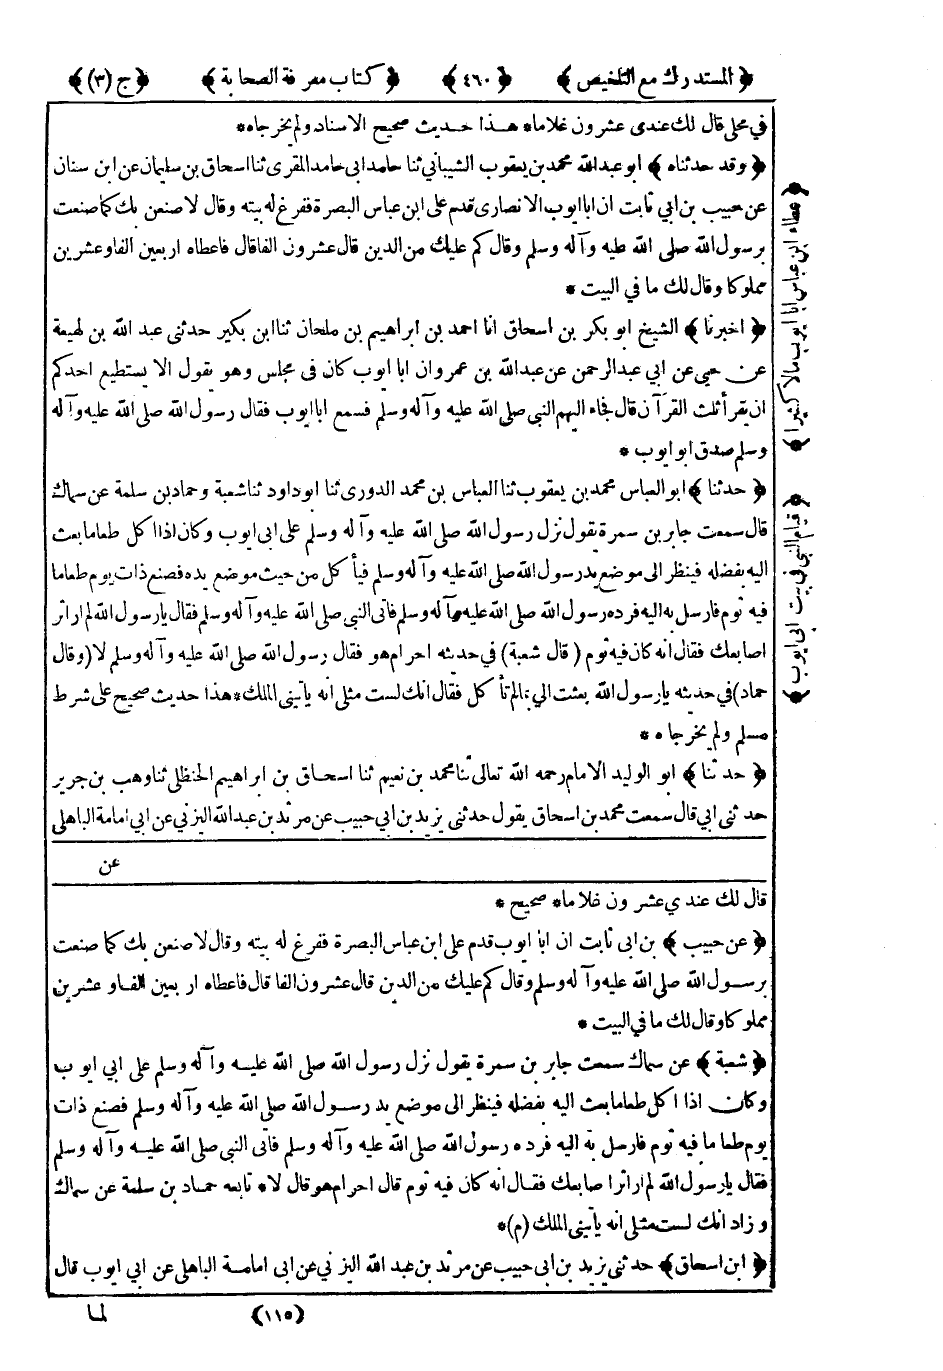 ﴿ المستدرك مع التلخيص ﴾ ﴿ ٤٦٠ ﴾ ﴿ كتاب معرفة الصحابة ﴾ ﴿ ج (٣) ﴾
في محلي قال لك عندى عشرون غلاما * هذا حديث صحيح الاسناد ولم يخرجاه *
﴿ وقد حدثناه ﴾ ابو عبدالله محمد بن يعقوب الشيباني ثنا حامد ابى حامد المقرى ثنا اسحاق بن سليمان عن ابن سنان
عن حبيب بن ابي ثابت ان ابا ايوب الانصارى قدم على ابن عباس البصرة ففرغ له بيته وقال لاصنعن بك كما صنعت
برسول الله صلى الله عليه وآله وسلم وقال كم عليك من الدين قال عشرون الفا قال فاعطاه اربعين الفا وعشرين
مملوكا وقال لك ما في البيت *
﴿ اخبرنا ﴾ الشيخ ابو بكر بن اسحاق انا احمد بن ابراهيم بن ملحان ثنا ابن بكير حدثنى عبد الله بن لهيعة
عن حيى عن ابي عبدالرحمن عن عبدالله بن عمرو ان ابا ايوب كان في مجلس وهو يقول الا يستطيع احدكم
ان يقرأ ثلث القرآن قال فجاء اليهم النبي صلى الله عليه وآله وسلم فسمع ابا ايوب فقال رسول الله صلى الله عليه وآله
وسلم صدق ابو ايوب *
﴿ حدثنا ﴾ ابو العباس محمد بن يعقوب ثنا العباس بن محمد الدورى ثنا ابو داود ثنا شعبة وحماد بن سلمة عن سماك
قال سمعت جابر بن سمرة يقول نزل رسول الله صلى الله عليه وآله وسلم على ابى ايوب وكان اذا اكل طعاما بعث
اليه بفضله فينظر الى موضع يد رسول الله صلى الله عليه وآله وسلم فيأكل من حيث موضع يده فصنع ذات يوم طعاما
فيه ثوم فارسل به اليه فرده رسول الله صلى الله عليه وآله وسلم فاتى النبي صلى الله عليه وآله وسلم فقال يا رسول الله لم ار اثر
اصابعك فقال انه كان فيه ثوم ( قال شعبة ) في حديثه احرام هو فقال رسول الله صلى الله عليه وآله وسلم لا (وقال
حماد) في حديثه يا رسول الله بعثت الي بما لم تأكل فقال انك لست مثلى انه يأتينى الملك * هذا حديث صحيح على شرط
مسلم ولم يخرجاه *
﴿ حدثنا ﴾ ابو الوليد الامام رحمه الله تعالى ثنا محمد بن نعيم ثنا اسحاق بن ابراهيم الحنظلى ثنا وهب بن جرير
حدثنى ابي قال سمعت محمد بن اسحاق يقول حدثنى يزيد بن ابي حبيب عن مرثد بن عبدالله اليزني عن ابي امامة الباهلى
عن
قال لك عندي عشرون غلاما * صحيح *
﴿ عن حبيب ﴾ بن ابى ثابت ان ابا ايوب قدم على ابن عباس البصرة ففرغ له بيته وقال لاصنعن بك كما صنعت
برسول الله صلى الله عليه وآله وسلم وقال كم عليك من الدين قال عشرون الفا قال فاعطاه اربعين الفا وعشرين
مملوكا وقال لك ما في البيت *
﴿ شعبة ﴾ عن سماك سمعت جابر بن سمرة يقول نزل رسول الله صلى الله عليه وآله وسلم على ابي ايوب
وكان اذا اكل طعاما بعث اليه بفضله فينظر الى موضع يد رسول الله صلى الله عليه وآله وسلم فصنع ذات
يوم طعاما فيه ثوم فارسل به اليه فرده رسول الله صلى الله عليه وآله وسلم فاتى النبي صلى الله عليه وآله وسلم
فقال يا رسول الله لم ار اثر اصابعك فقال انه كان فيه ثوم قال احرام هو قال لا * تابعه حماد بن سلمة عن سماك
وزاد انك لست مثلى انه يأتينى الملك (م) *
﴿ ابن اسحاق ﴾ حدثنى يزيد بن ابى حبيب عن مرثد بن عبد الله اليزني عن ابى امامة الباهلى عن ابي ايوب قال
لما
(١١٥)
﴿ عطاء ابن عباس ابا ايوب مالا كثيرا ﴾
﴿ قيام النبي في بيت ابي ايوب ﴾